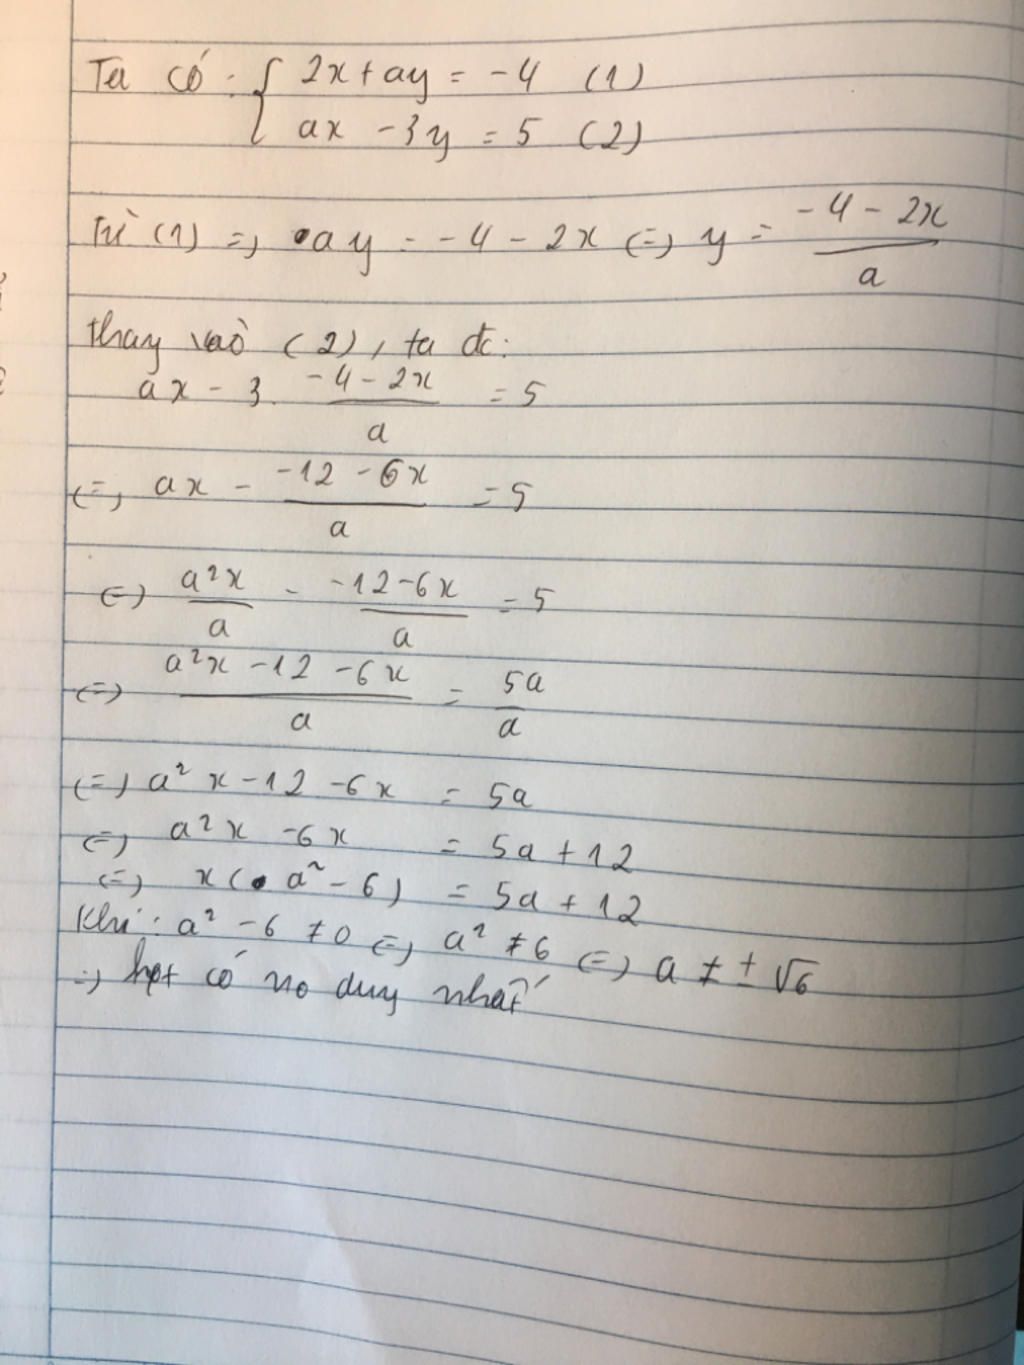 Ta có: { 2x + ay = -4 (1)
ax - 3y = 5 (2)
Từ (1) => ay = -4 - 2x <=> y = \frac{-4 - 2x}{a}
thay vào (2), ta đc:
ax - 3. \frac{-4 - 2x}{a} = 5
<=> ax - \frac{-12 - 6x}{a} = 5
<=> \frac{a²x}{a} - \frac{-12 - 6x}{a} = 5
<=> \frac{a²x - 12 - 6x}{a} = \frac{5a}{a}
<=> a²x - 12 - 6x = 5a
<=> a²x - 6x = 5a + 12
<=> x(a² - 6) = 5a + 12
Khi: a² - 6 ≠ 0 <=> a² ≠ 6 <=> a ≠ ± √6
=> hpt có no duy nhất